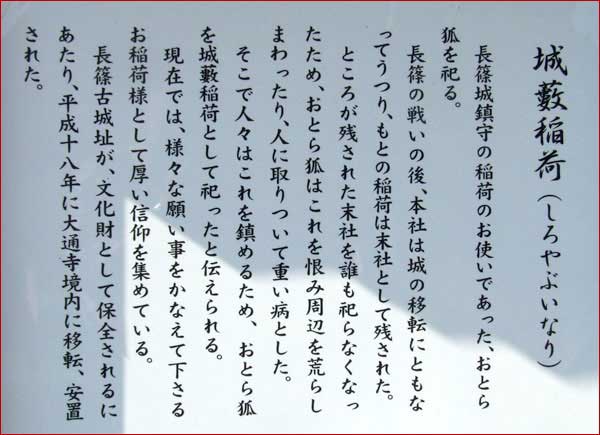 城藪稲荷（しろやぶいなり）
長篠城鎮守の稲荷のお使いであった、おとら
狐を祀る。
長篠の戦いの後、本社は城の移転にともな
ってうつり、もとの稲荷は末社として残された。
ところが残された末社を誰も祀らなくなっ
たため、おとら狐はこれを恨み周辺を荒らし
まわったり、人に取りついて重い病とした。
そこで人々はこれを鎮めるため、おとら狐
を城藪稲荷として祀ったと伝えられる。
現在では、様々な願い事をかなえて下さる
お稲荷様として厚い信仰を集めている。
長篠古城址が、文化財として保全されるに
あたり、平成十八年に大通寺境内に移転、安置
された。